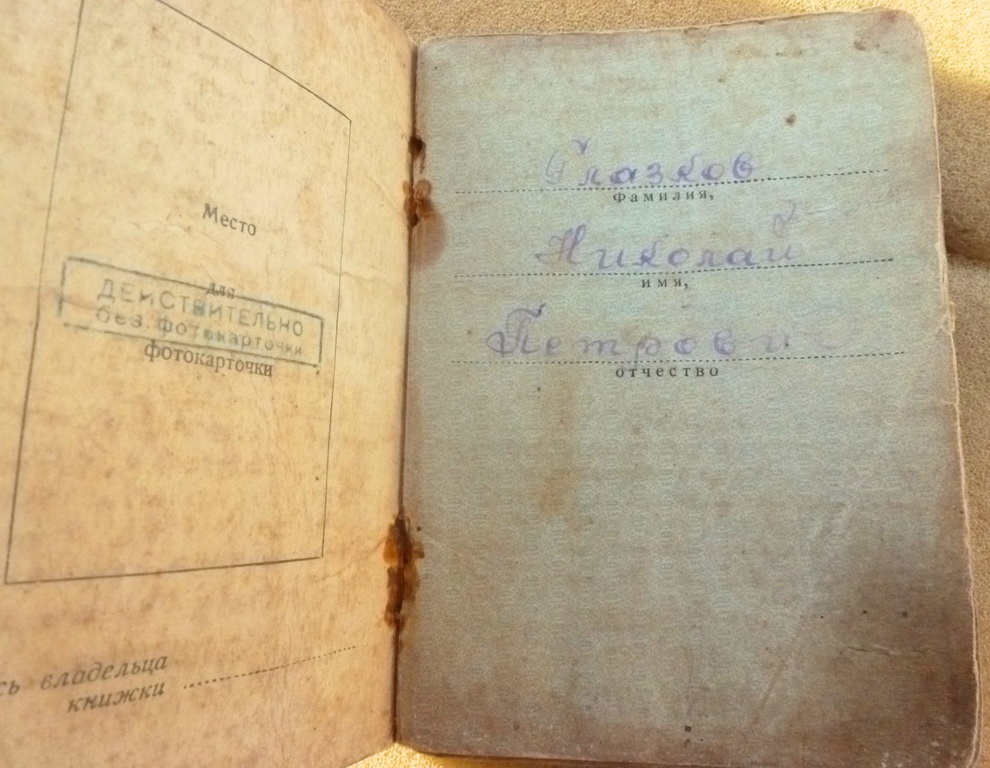 Место
для
ДЕЙСТВИТЕЛЬНО
без фотокарточки
фотокарточки
сь владельца
книжки
Глазков
Фамилия,
Николай
имя,
Петрович
отчество